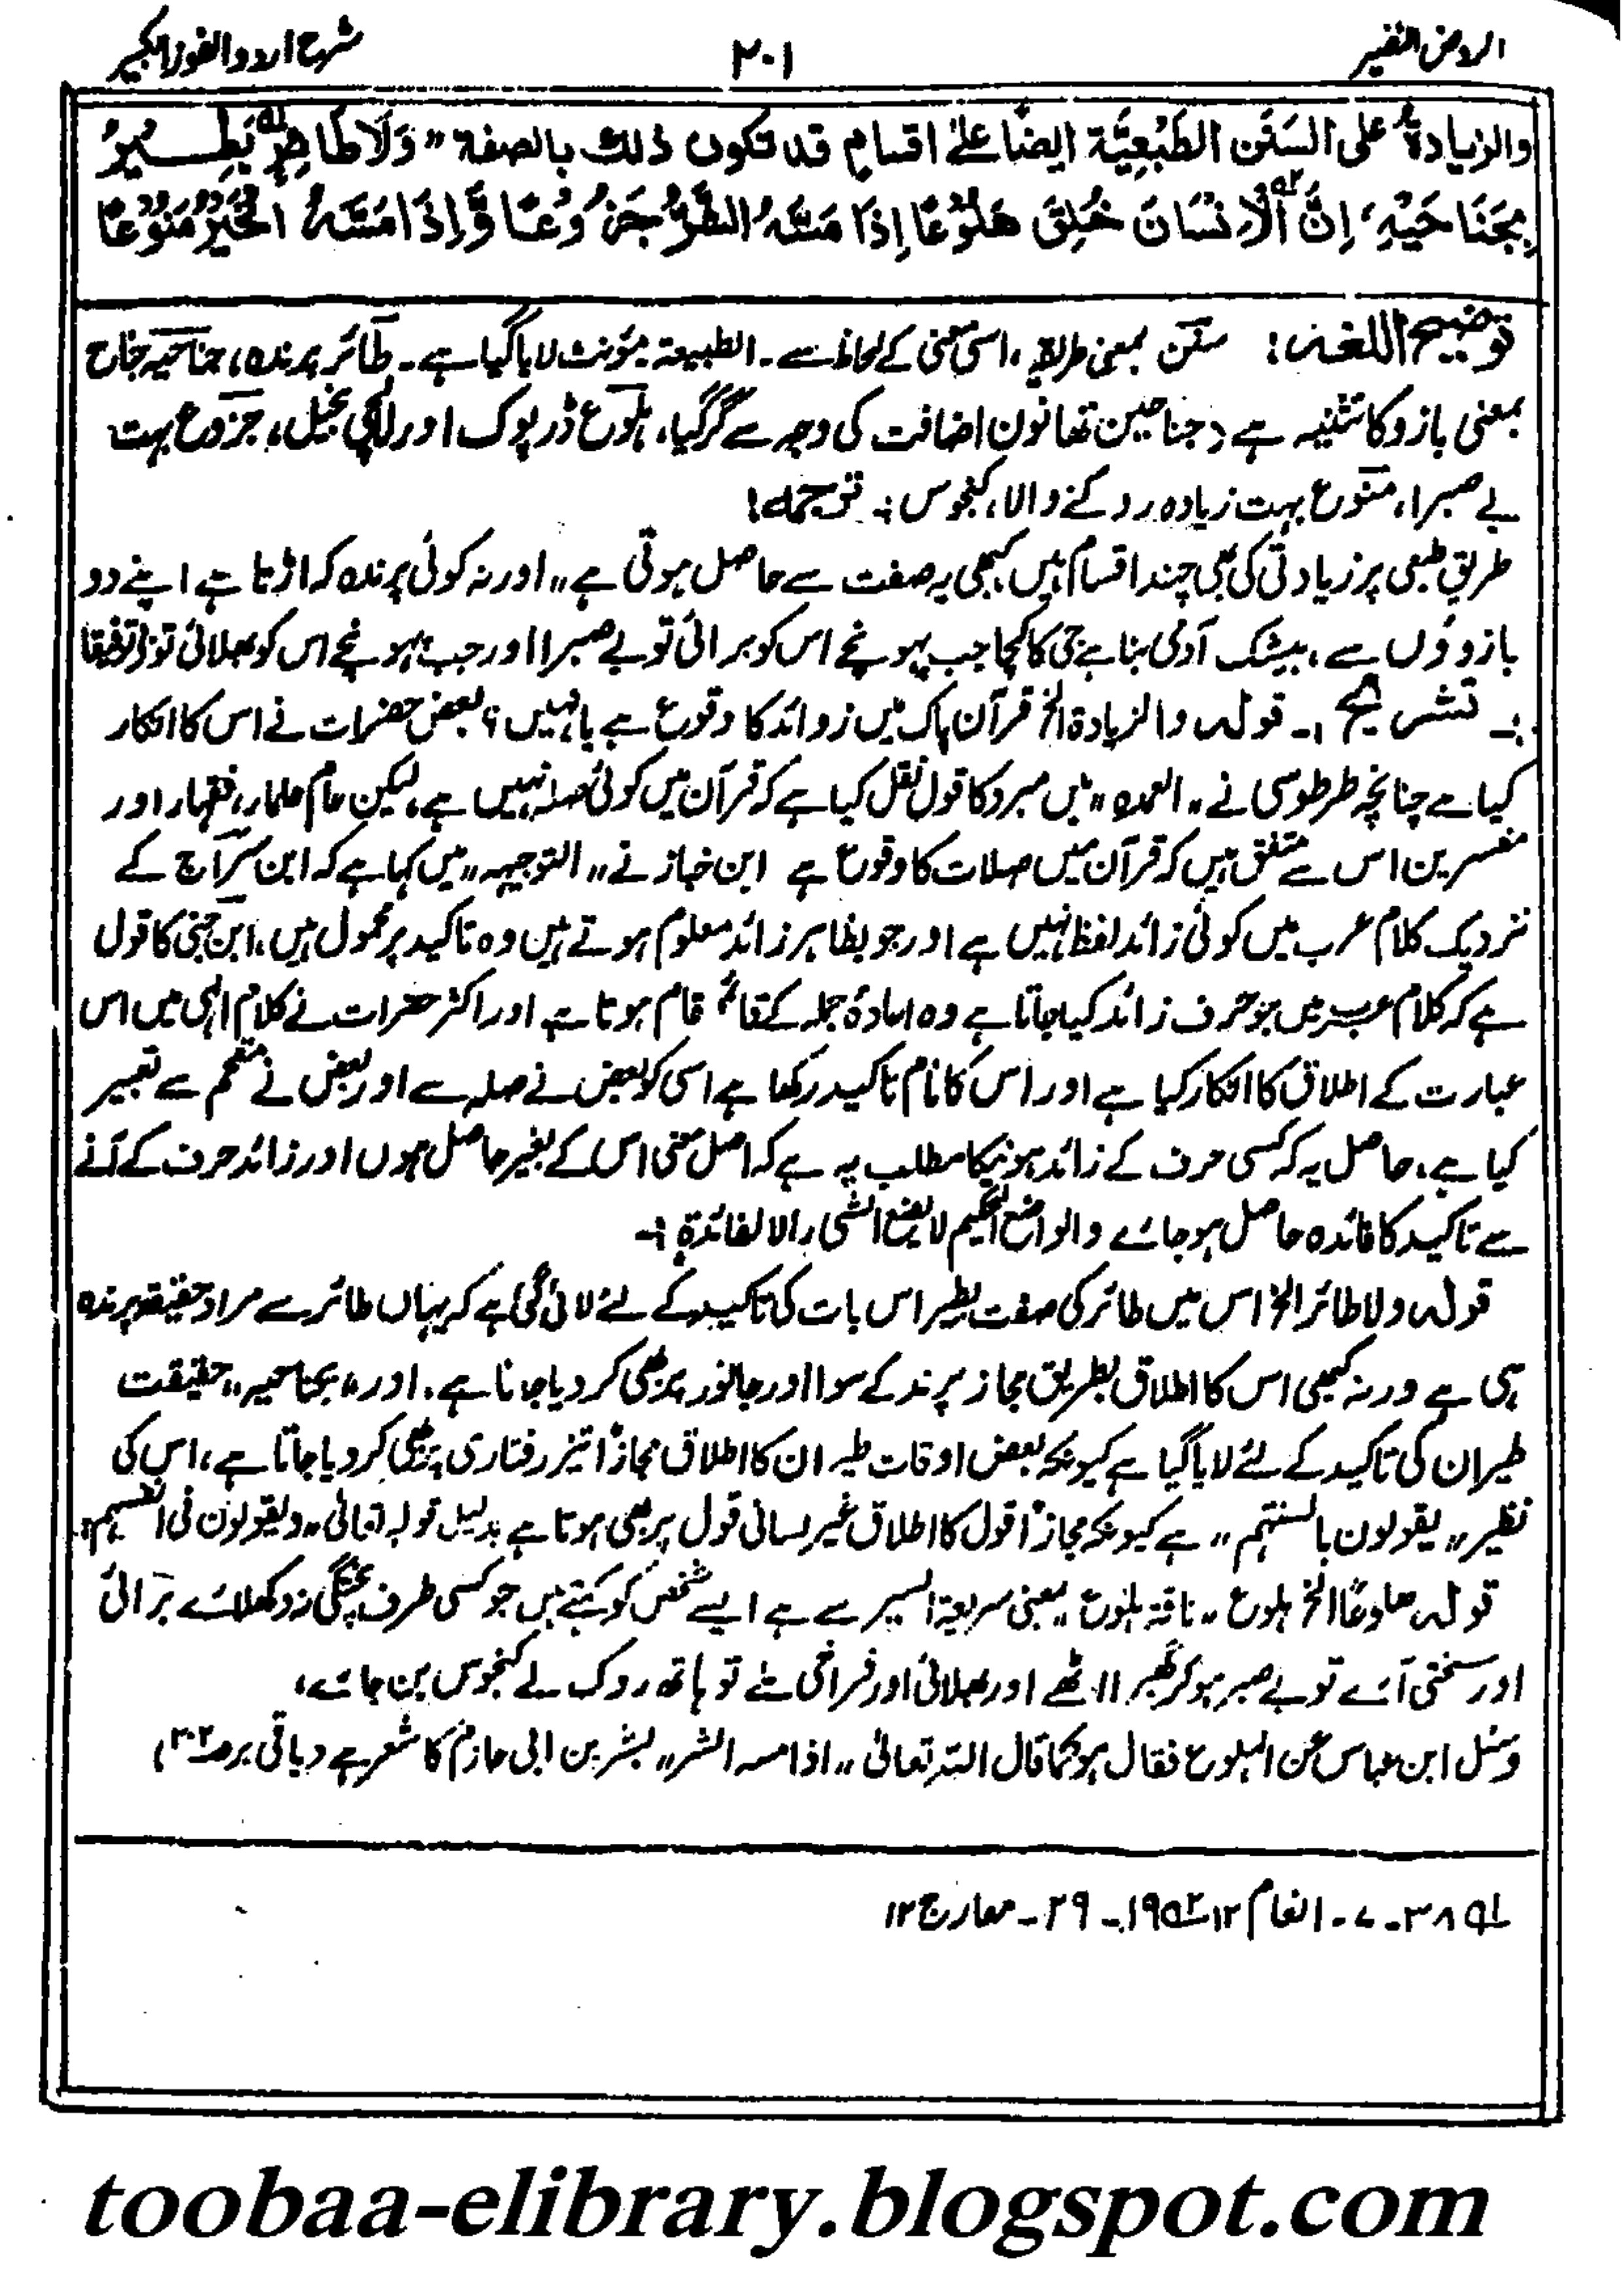 الروض النضیر
۲۰۱
شرح اردو الفوز الکبیر
والزیادۃُ علی السَنَنِ الطَبْعِیَّۃ ایضًا علیٰ اقسامٍ قد تکون ذلک بالصفۃ ‟وَلَا طَائِرٍ لہ یَطِیْرُ
بِجَنَاحَیْہِ، اِنَّ ۲ہ الْاِنْسَانَ خُلِقَ ھَلُوْعًا اِذَا مَسَّہُ الشَّرُّ جَزُوْعًا وَّاِذَا مَسَّہُ الْخَیْرُ مَنُوْعًا
توضیح اللغۃ: سَنَن بمعنی طریقہ، اسی معنی کے لحاظ سے۔ الطبیعۃ مؤنث لایا گیا ہے۔ طائر پرندہ، جناحیہ جناح
بمعنی بازو کا تثنیہ ہے (جناحین تھا نون اضافت کی وجہ سے گر گیا، ہلوع ڈرپوک اور لالچی بخیل، جزوع بہت
بے صبرا، منوع بہت زیادہ روکنے والا، کنجوس :۔ ترجمہ!
طریق طبعی پر زیادتی کی بھی چند اقسام ہیں کبھی یہ صفت سے حاصل ہوتی ہے ،، اور نہ کوئی پرندہ کہ اڑتا ہے اپنے دو
بازوؤں سے، بیشک آدمی بنا ہے جی کا کچا جب پہونچے اس کو برائی تو بے صبرا اور جب پہونچے اس کو بھلائی تو نا توفیقا
:۔ تشریح :۔ قولہ والزیادۃ الخ قرآن پاک میں زوائد کا وقوع ہے یا نہیں؟ بعض حضرات نے اس کا انکار
کیا ہے چنانچہ طرطوسی نے ،،العمدہ،، میں مبرد کا قول نقل کیا ہے کہ قرآن میں کوئی صلہ نہیں ہے، لیکن عام علماء، فقہاء اور
مفسرین اس سے متفق ہیں کہ قرآن میں صلات کا وقوع ہے ابن خباز نے ،،التوجیہہ،، میں کہا ہے کہ ابن سراج کے
نزدیک کلام عرب میں کوئی زائد لفظ نہیں ہے اور جو بظاہر زائد معلوم ہوتے ہیں وہ تاکید پر محمول ہیں، ابن جنی کا قول
ہے کہ کلام عرب میں جو حرف زائد کیا جاتا ہے وہ اعادۂ جملہ کے قائم قام ہوتا ہے اور اکثر حضرات نے کلام الٰہی میں اس
عبارت کے اطلاق کا انکار کیا ہے اور اس کا نام تاکید رکھا ہے اسی کو بعض نے صلہ سے اور بعض نے مقحم سے تعبیر
کیا ہے، حاصل یہ کہ کسی حرف کے زائد ہونیکا مطلب یہ ہے کہ اصل معنی اس کے بغیر حاصل ہوں اور زائد حرف کے آنے
سے تاکید کا فائدہ حاصل ہو جائے والواضع الحکیم لایضع الشئ الا لفائدۃ :۔
قولہ ولا طائر الخ اس میں طائر کی صفت یطیر اس بات کی تاکید کے لئے لائی گئی ہے کہ یہاں طائر سے مراد حقیقۃً پرندہ
ہی ہے ورنہ کبھی اس کا اطلاق بطریق مجاز پرند کے سوا اور جانور پر بھی کر دیا جاتا ہے، اور ،،بجناحیہ،، حقیقت
طیران کی تاکید کے لئے لایا گیا ہے کیونکہ بعض اوقات طیران کا اطلاق مجازاً تیز رفتاری پر بھی کر دیا جاتا ہے، اس کی
نظیر ،،یقولون بالسنتہم،، ہے کیونکہ مجازاً قول کا اطلاق غیر لسانی قول پر بھی ہوتا ہے بدلیل قولہ تعالیٰ ،،ویقولون فی انفسہم،،
قولہ ھلوعًا الخ ہلوع ،،ناقۃ ہلوع،، بمعنی سریعۃ السیر سے ہے ایسے شخص کو کہتے ہیں جو کسی طرف پختگی نہ دکھلائے برائی
اور سختی آئے تو بے صبر ہو کر گھبرا اٹھے اور بھلائی اور فراخی ملے تو ہاتھ روک لے کنجوس بن جائے،
وسئل ابن عباس عن الہلوع فقال ہو کما قال اللہ تعالیٰ ،،اذا مسہ الشر،، بشر بن ابی حازم کا شعر ہے (باقی بر صـ۲۰۲)
لہ ۳۸۔ ۷۔ انعام ۱۲ ۲ہ ۱۹۔ ۲۹۔ معارج ۱۲
toobaa-elibrary.blogspot.com